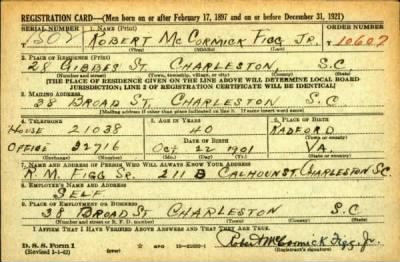 REGISTRATION CARD—(Men born on or after February 17, 1897 and on or before December 31, 1921)
SERIAL NUMBER 1. NAME (Print) ORDER NUMBER
ROBERT MCCORMICK FIGG JR. 10607
(First) (Middle) (Last)
2. PLACE OF RESIDENCE (Print)
28 GIBBES ST CHARLESTON S.C
(Number and street) (Town, township, village, or city) (County) (State)
[THE PLACE OF RESIDENCE GIVEN ON THE LINE ABOVE WILL DETERMINE LOCAL BOARD
JURISDICTION; LINE 2 OF REGISTRATION CERTIFICATE WILL BE IDENTICAL]
3. MAILING ADDRESS
38 BROAD ST. CHARLESTON S.C
[Mailing address if other than place indicated on line 2. If same insert word same]
4. TELEPHONE 5. AGE IN YEARS 6. PLACE OF BIRTH
HOUSE 21038 40 RADFORD
DATE OF BIRTH (Town or county)
OFFICE 22716 OCT 22 1901 VA.
(Mo.) (Day) (Yr.) (State or country)
7. NAME AND ADDRESS OF PERSON WHO WILL ALWAYS KNOW YOUR ADDRESS
R. M. FIGG SR. 211 B CALHOUN ST CHARLESTON SC
8. EMPLOYER'S NAME AND ADDRESS
SELF
9. PLACE OF EMPLOYMENT OR BUSINESS
38 BROAD ST. CHARLESTON S.C
(Number and street or R. F. D. number) (Town) (County) (State)
I AFFIRM THAT I HAVE VERIFIED ABOVE ANSWERS AND THAT THEY ARE TRUE.
D. S. S. Form 1
(Revised 1-1-42) (over) Robert McCormick Figg, Jr.
(Registrant's signature)